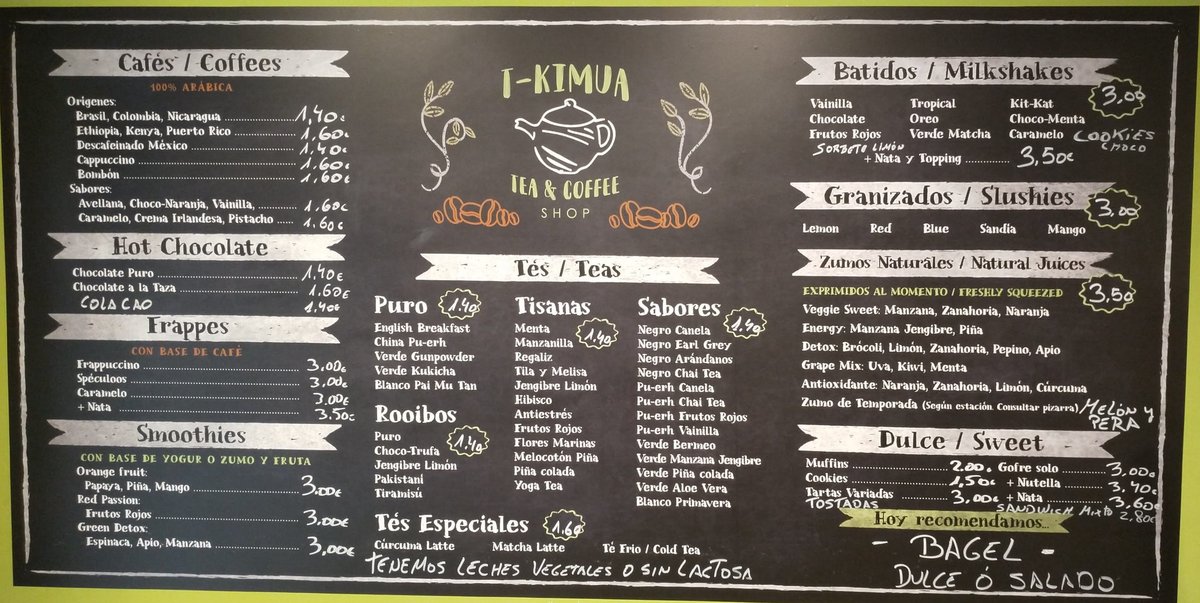 Cafés / Coffees
100% ARÁBICA
Orígenes:
Brasil, Colombia, Nicaragua 1,40€
Ethiopia, Kenya, Puerto Rico 1,60€
Descafeinado México 1,40€
Cappuccino 1,60€
Bombón 1,60€
Sabores:
Avellana, Choco-Naranja, Vainilla, 1,60€
Caramelo, Crema Irlandesa, Pistacho 1.60€
Hot Chocolate
Chocolate Puro 1,40€
Chocolate a la Taza 1.60€
COLA CAO 1,40€
Frappes
CON BASE DE CAFÉ
Frappuccino 3,00€
Spéculoos 3,00€
Caramelo 3,00€
+ Nata 3.50€
Smoothies
CON BASE DE YOGUR O ZUMO Y FRUTA
Orange fruit:
Papaya, Piña, Mango 3,00€
Red Passion:
Frutos Rojos 3,00€
Green Detox:
Espinaca, Apio, Manzana 3,00€
T-KIMUA
TEA & COFFEE
SHOP
Tés / Teas
Puro 1.40
English Breakfast
China Pu-erh
Verde Gunpowder
Verde Kukicha
Blanco Pai Mu Tan
Rooibos
Puro 1.40
Choco-Trufa
Jengibre Limón
Pakistani
Tiramisú
Tisanas
Menta 1.40
Manzanilla
Regaliz
Tila y Melisa
Jengibre Limón
Hibisco
Antiestrés
Frutos Rojos
Flores Marinas
Melocotón Piña
Piña colada
Yoga Tea
Sabores 1.40
Negro Canela
Negro Earl Grey
Negro Arándanos
Negro Chai Tea
Pu-erh Canela
Pu-erh Chai Tea
Pu-erh Frutos Rojos
Pu-erh Vainilla
Verde Bermeo
Verde Manzana Jengibre
Verde Piña colada
Verde Aloe Vera
Blanco Primavera
Tés Especiales 1.60
Cúrcuma Latte Matcha Latte Té Frio / Cold Tea
TENEMOS LECHES VEGETALES O SIN LACTOSA
Batidos / Milkshakes 3,00
Vainilla Tropical Kit-Kat
Chocolate Oreo Choco-Menta
Frutos Rojos Verde Matcha Caramelo COOKIES CHOCO
SORBETO LIMÓN
+ Nata y Topping 3,50€
Granizados / Slushies 3,00
Lemon Red Blue Sandía Mango
Zumos Naturales / Natural Juices
EXPRIMIDOS AL MOMENTO / FRESHLY SQUEEZED 3,50
Veggie Sweet: Manzana, Zanahoria, Naranja
Energy: Manzana Jengibre, Piña
Detox: Brócoli, Limón, Zanahoria, Pepino, Apio
Grape Mix: Uva, Kiwi, Menta
Antioxidante: Naranja, Zanahoria, Limón, Cúrcuma
Zumo de Temporada (Según estación. Consultar pizarra) MELÓN Y PERA
Dulce / Sweet
Muffins 2,00€ Gofre solo 3,00€
Cookies 1,50€ + Nutella 3,40€
Tartas Variadas 3,00€ + Nata 3,60€
TOSTADAS SANDWICH MIXTO 2,80€
Hoy recomendamos...
- BAGEL -
DULCE Ó SALADO